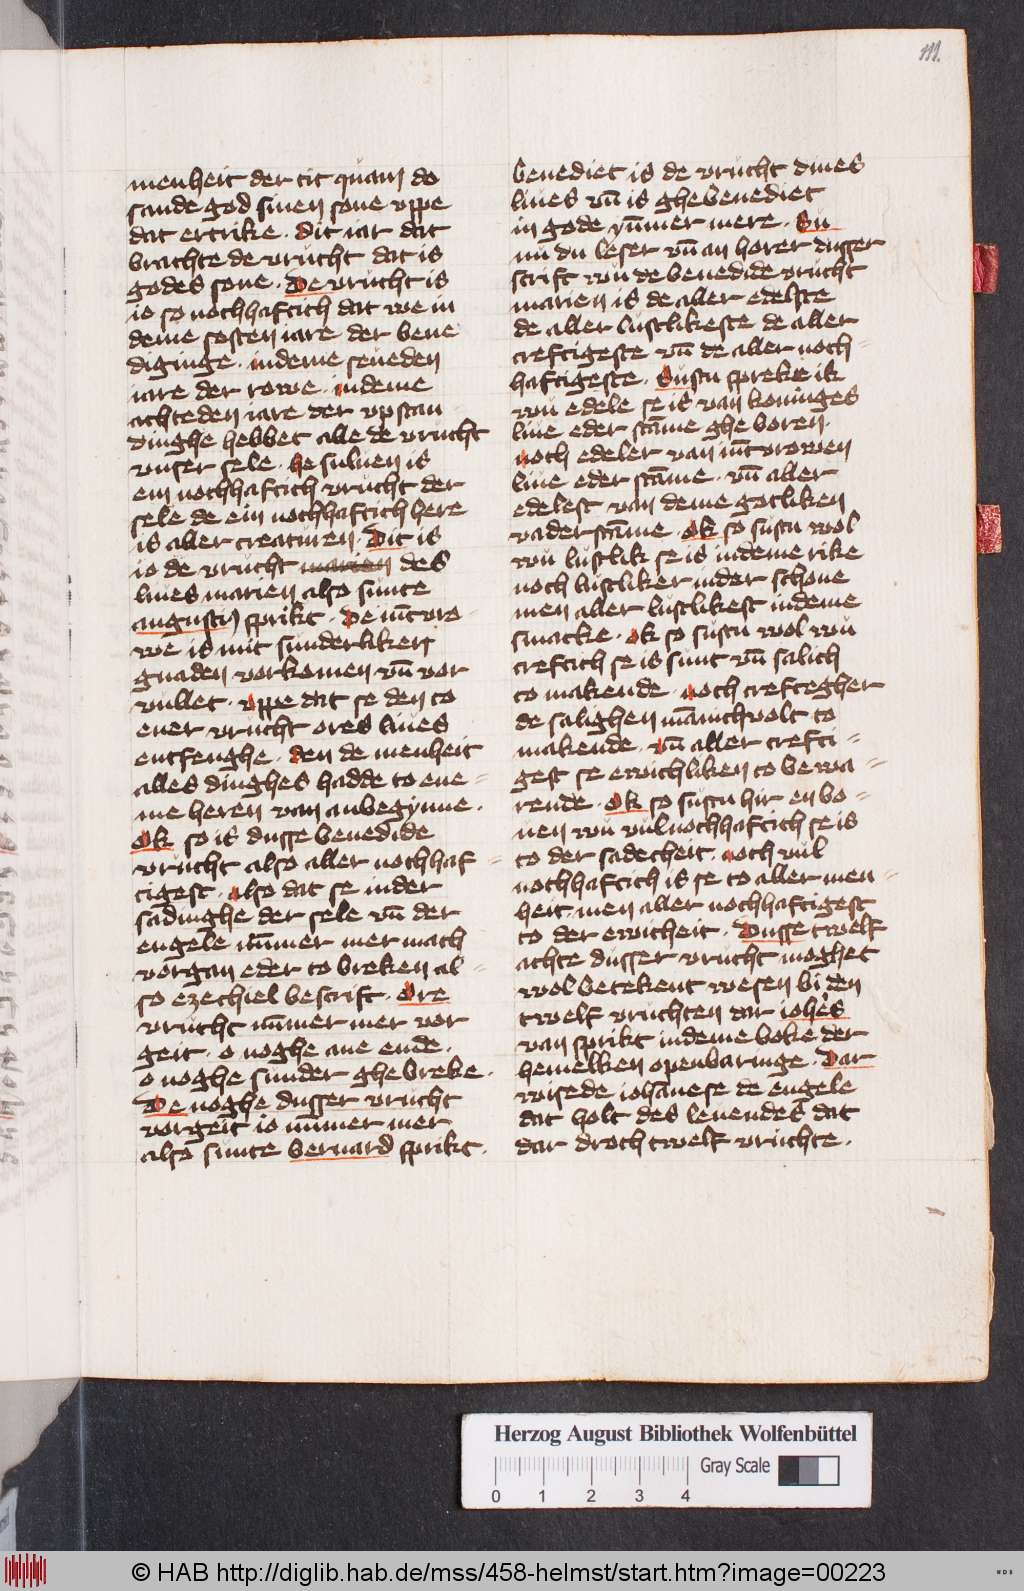 111.
menheit der tit quam do
sande god sinen sone vppe
dat ertrike. Dit iar dat
brachte de vrucht dat is
godes sone. De vrucht is
io so nochhaftich dat we in
deme sosten iare der bene
diginge. indeme seueden
iare der rowe. indeme
achteden iare der vpstan
dinghe hebbet alle de vrucht
vnser sele. he suluen is
ein nochhaftich vrucht der
sele de ein nochhaftich here
is aller creaturen. Dit is
io de vrucht marien des
liues marien also sunte
augustin sprikt. De iūcvro
we is mit sunderliken
gnaden vorkomen vn̄ vor
vullet. vppe dat se den to
ener vrucht ores liues
entfenghe. den de menheit
alles dinghes hadde to ene=
me heren van anbegynne.
Ok so is dusse benedide
vrucht also aller nochhaf=
tigest. also dat se inder
sadinghe der sele vn̄ der
engele nūmer mer mach
vorgan eder to breken al=
so ezechiel bescrift. Ore
vrucht nūmer mer vor
geit. o noghe ane ende.
o noghe sunder ghebreke.
De noghe dusser vrucht
vorgeit io nūmer mer
also sunte bernard sprikt.
benediet is de vrucht dines
liues vn̄ is ghebenediet
in gode ȳmmer mere. Su
nu du leser vn̄ an horer dusser
scrift wu de benedide vrucht
marien is de aller edelste
de aller lustlikeste de aller
creftigeste vn̄ de aller noch=
haftigeste. Sustu spreke ik
wu edele se is van koninges
liue eder stāme ghe boren.
noch edeler van iūcvrowen
liue eder stāme. vn̄ aller
edelest van deme gotliken
vader stāme. Ok so sustu wol
wu lustlik se is indeme rike
noch lustliker inder schone
men aller lustlikest indeme
smacke. Ok so sustu wol wu
creftich se is sunt vn̄ salich
to makende. noch creftegher
de salighen mānichvolt to
makende. vn̄ aller crefti=
gest se ewichliken to bewa=
rende. Ok so sustu hir en bo=
uen wu vulnochhaftich se is
to der sadecheit. noch vul
nochhaftich is se to aller men=
heit. men aller nochhaftigest
to der ewicheit. Dusse twelf
achte dusser vrucht moghet
wol betekent wesen bi den
twelf vruchten dar iohēs
van sprikt indeme boke der
hemelken openbaringe. Dar
wisede iohānese de engele
dat holt des leuendes dat
dar droch twelf vruchte.
Herzog August Bibliothek Wolfenbüttel
Gray Scale
0 1 2 3 4
© HAB http://diglib.hab.de/mss/458-helmst/start.htm?image=00223